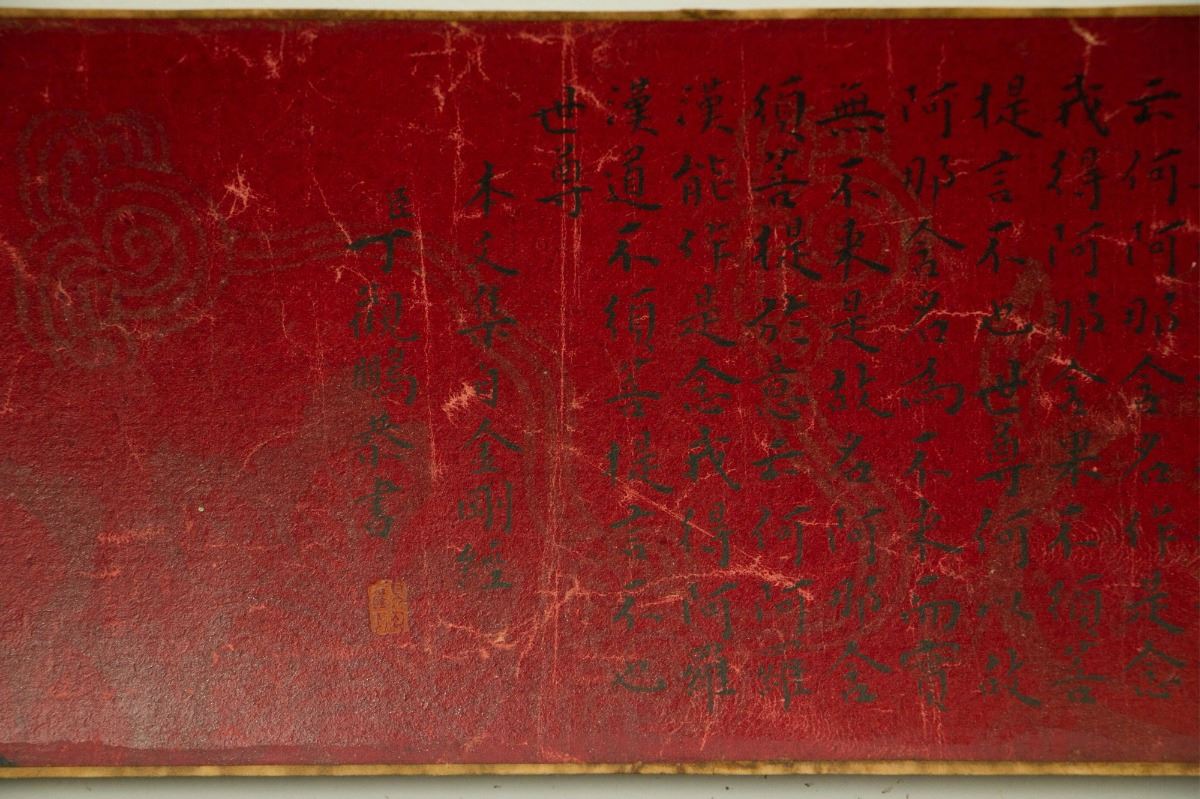 云何阿那含名作是念
我得阿那含果不須菩
提言不也世尊何以故
阿那含名為不来而實
無不来是故名阿那含
須菩提於意云何阿羅
漢能作是念我得阿羅
漢道不須菩提言不也
世尊
本文集自金剛經
臣丁觀鵬恭書